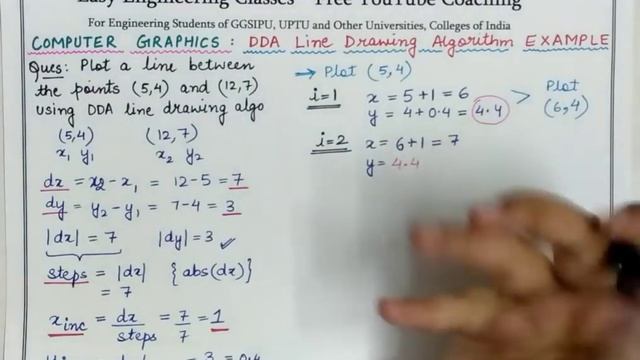 Easy Engineering Classes - Free YouTube Coaching
For Engineering Students of GGSIPU, UPTU and Other Universities, Colleges of India
COMPUTER GRAPHICS : DDA Line Drawing Algorithm EXAMPLE
Ques: Plot a line between
the points (5,4) and (12,7)
using DDA line drawing algo
(5,4) (12,7)
x₁ y₁ x₂ y₂
dx = x₂-x₁ = 12-5 = 7
dy = y₂-y₁ = 7-4 = 3
|dx| = 7 |dy| = 3 ✓
steps = |dx| {abs(dx)}
= 7
xinc = dx/steps = 7/7 = 1
= 3 = 0.4
→ Plot (5,4)
i=1 x = 5+1 = 6
y = 4+0.4 = 4.4 > Plot (6,4)
i=2 x = 6+1 = 7
y = 4.4